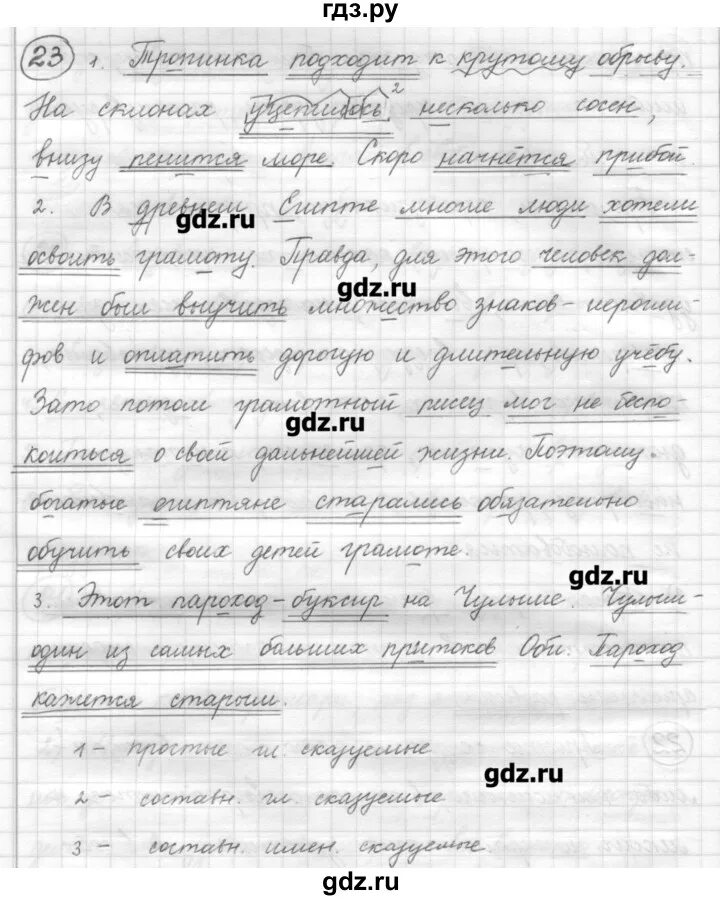 гдз.ру
23 1. Тропинка подходит к крутому обрыву.
На склонах уцепилось 2 несколько сосен,
внизу пенится море. Скоро начнётся прибой.
2. В древнем Египте многие люди хотели
gdz.ru
освоить грамоту. Правда, для этого человек дол-
gdz.ru
жен был выучить множество знаков - иерогли-
фов и оплатить дорогую и длительную учёбу.
Зато потом грамотный писец мог не беспо-
gdz.ru
коиться о своей дальнейшей жизни. Поэтому
богатые египтяне старались обязательно
обучить своих детей грамоте.
gdz.ru
3. Этот пароход-буксир на Чулыме. Чулым-
один из самых больших притоков Оби. Пароход
кажется старым.
1 - простые гл. сказуемые
22
gdz.ru
2 - составн. гл. сказуемые
3 - составн. имен. сказуемые.
gdz.ru